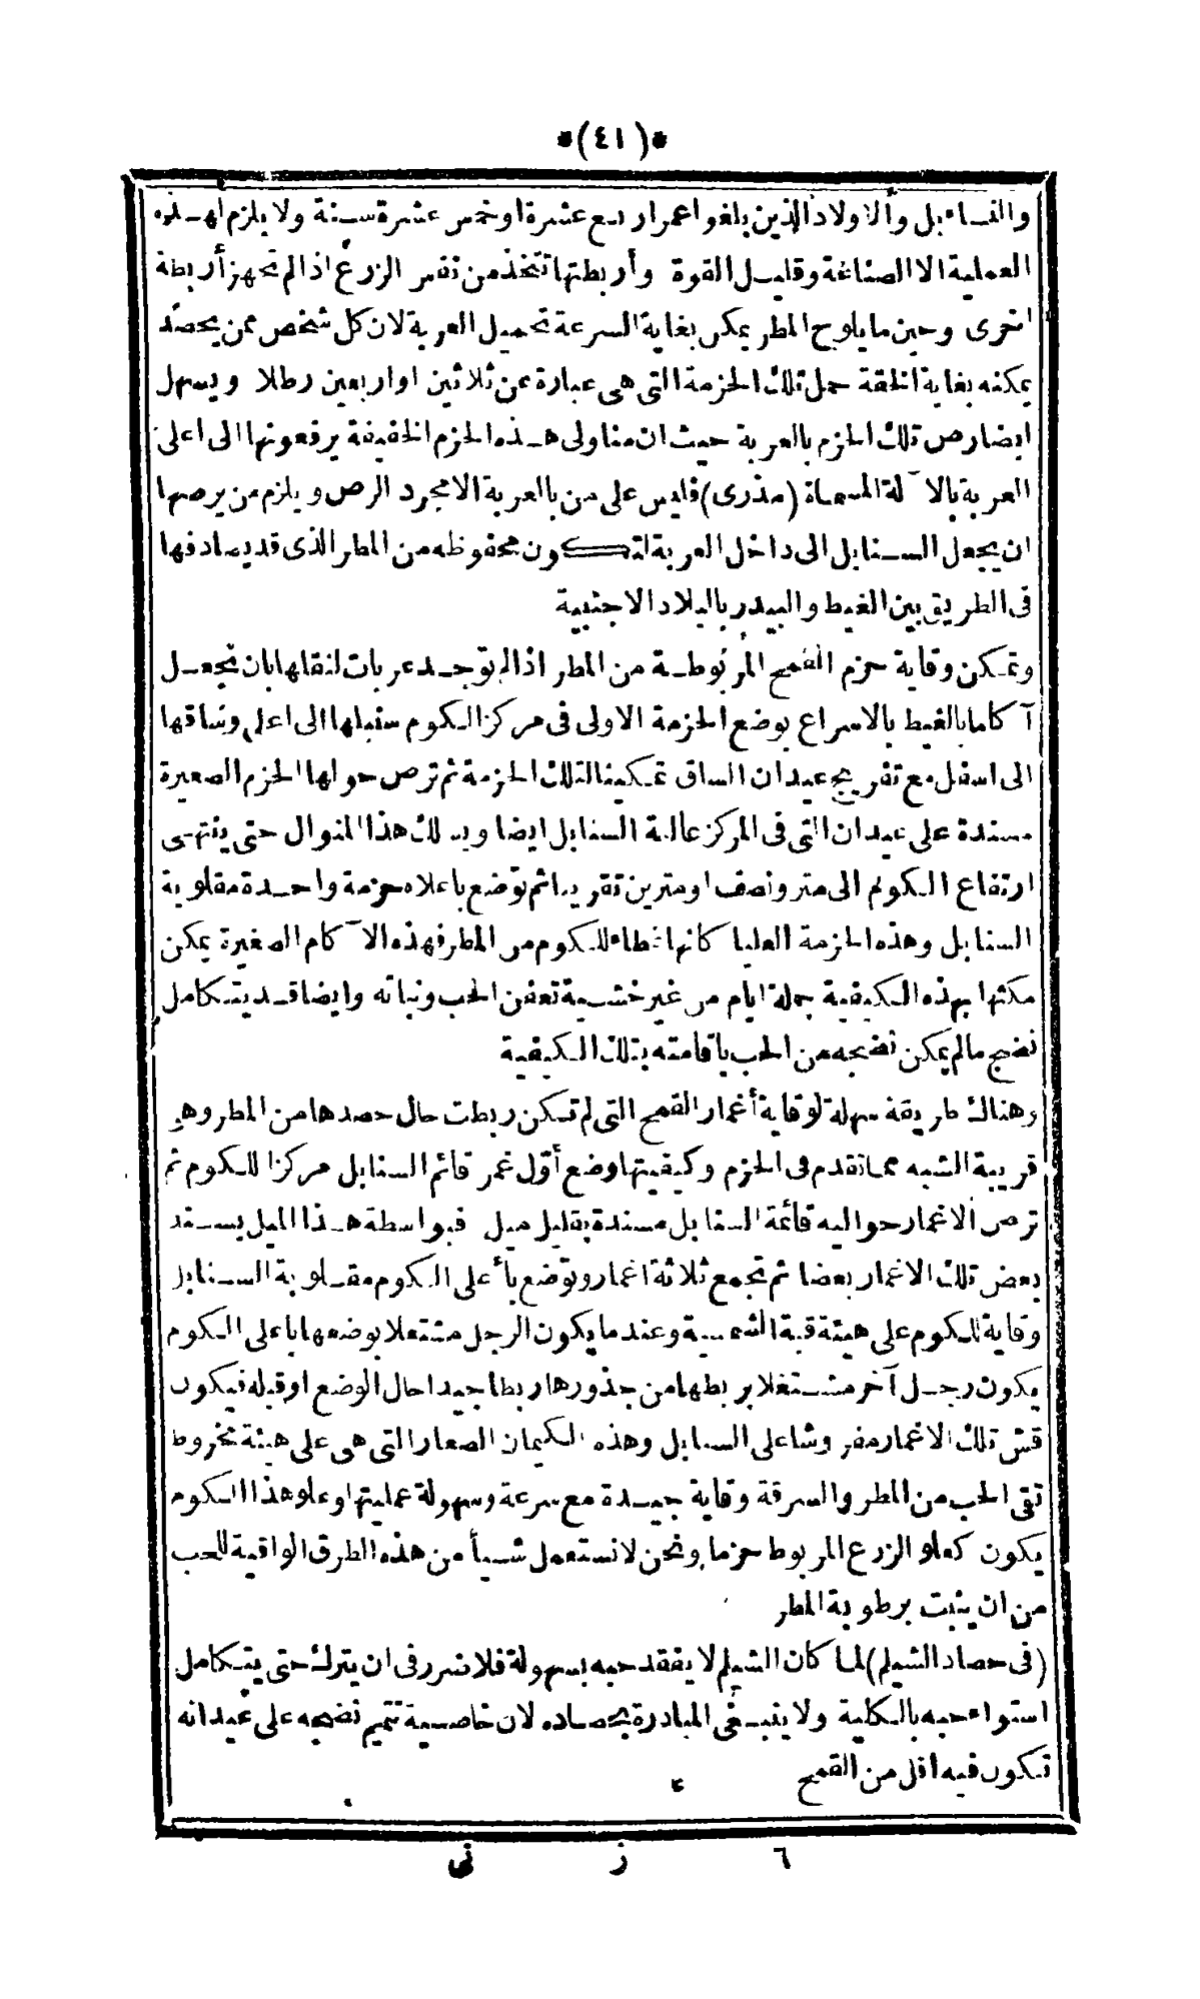 *(٤١)*
والنساء بل والاولاد الذين بلغوا عمر اربع عشرة او خمس عشرة سنة ولا يلزم لهذه
العملية الا الصناعة وقليل القوة وأربطتها تتخذ من نفس الزرع اذا لم تجهز أربطة
اخرى وحين ما يلوح المطر يمكن بغاية السرعة تحميل العربة لان كل شخص ممن يحصد
يمكنه بغاية الخفة حمل تلك الحزمة التى هى عبارة عن ثلاثين او اربعين رطلا ويسهل
ايضا رص تلك الحزم بالعربة حيث ان مناولى هذه الحزم الخفيفة يرفعونها الى اعلى
العربة بالآلة المسماة (مذرى) فليس على من بالعربة الا مجرد الرص ويلزم من يرصها
ان يجعل السنابل الى داخل العربة لتكون محفوظه من المطر الذى قد يصادفها
فى الطريق بين الغيط والبيدر بالبلاد الاجنبية
وتمكن وقاية حزم القمح المربوطة من المطر اذا لم توجد عربات لنقلها بان تجعل
آكاما بالغيط بالاسراع بوضع الحزمة الاولى فى مركز الكوم سنبلها الى اعلى وساقها
الى اسفل مع تفريج عيدان الساق تمكينا لتلك الحزمة ثم ترص حولها الحزم الصغيرة
مسندة على عيدان التى فى المركز عالية السنابل ايضا ويسلك هذا المنوال حتى ينتهى
ارتفاع الكوم الى متر ونصف او مترين تقريبا ثم توضع باعلاه حزمة واحدة مقلوبة
السنابل وهذه الحزمة العليا كانها غطاء للكوم من المطر فهذه الآكام الصغيرة يمكن
مكثها بهذه الكيفية جملة ايام من غير خشية تعفن الحب ونباته وايضا قد يتكامل
نضج ما لم يمكن نضجه من الحب باقامته بتلك الكيفية
وهناك طريقة سهلة لوقاية أغمار القمح التى لم تكن ربطت حال حصدها من المطر وهى
قريبة الشبه مما تقدم فى الحزم وكيفيتها وضع أول غمر قائم السنابل مركزا للكوم ثم
ترص الاغمار حواليه قائمة السنابل مسندة بقليل ميل فبواسطة هذا الميل يسند
بعض تلك الاغمار بعضا ثم تجمع ثلاثة اغمار وتوضع بأعلى الكوم مقلوبة السنابل
وقاية للكوم على هيئة قبة الشمسية وعندما يكون الرجل مشتغلا بوضعها باعلى الكوم
يكون رجل آخر مشتغلا بربطها من جذورها ربطا جيدا حال الوضع او قبله فيكون
قش تلك الاغمار مفروشا على السنابل وهذه الكيمان الصغار التى هى على هيئة مخروط
تقى الحب من المطر والسرقة وقاية جيدة مع سرعة وسهولة عمليتها وعلو هذا الكوم
يكون كعلو الزرع المربوط حزما ونحن لا نستعمل شيأ من هذه الطرق الواقية للحب
من ان ينبت برطوبة المطر
(فى حصاد الشيلم) لما كان الشيلم لا يفقد حبه بسهولة فلا ضرر فى ان يترك حتى يتكامل
استواء حبه بالكلية ولا ينبغى المبادرة بحصاده لان خاصية تتميم نضجه على عيدانه
تكون فيه اقل من القمح
٦ ز نى